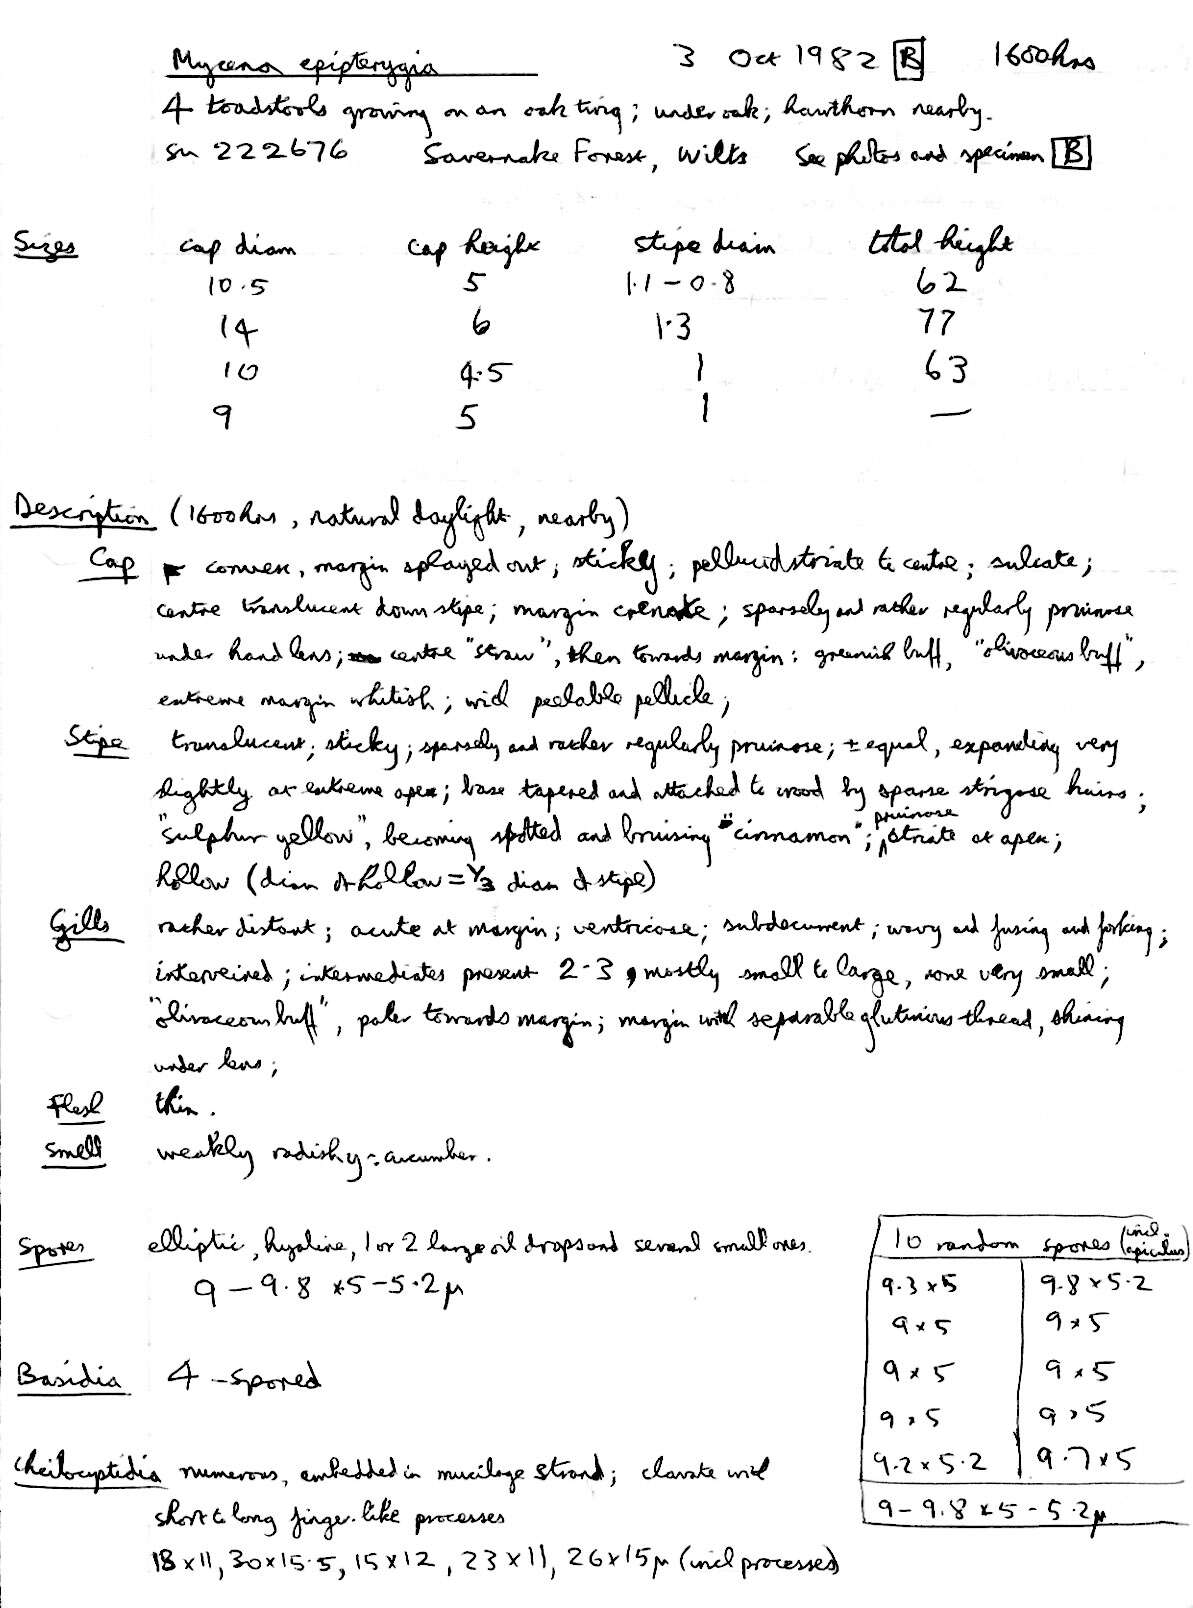 Mycena epipterygia 3 Oct 1982 B 1600hrs
4 toadstools growing on an oak twig; under oak; hawthorn nearby.
SU 222676 Savernake Forest, Wilts See photos and specimen B
Sizes cap diam cap height stipe diam total height
10.5 5 1.1-0.8 62
14 6 1.3 77
10 4.5 1 63
9 5 1 —
Description (1600hrs, natural daylight, nearby)
Cap convex, margin splayed out; stickly; pellucid striate to centre; sulcate;
centre translucent down stipe; margin crenate; sparsely and rather regularly pruinose
under hand lens; centre "straw", then towards margin: greenish buff, "olivaceous buff",
extreme margin whitish; with peelable pellicle;
Stipe translucent; sticky; sparsely and rather regularly pruinose; ± equal, expanding very
slightly at extreme apex; base tapered and attached to wood by sparse strigose hairs;
"sulphur yellow", becoming spotted and bruising "cinnamon"; pruinose striate at apex;
hollow (diam of hollow = 1/3 diam of stipe)
Gills rather distant; acute at margin; ventricose; subdecurrent; wavy and fusing and forking;
interveined; intermediates present 2-3, mostly small to large, none very small;
"olivaceous buff", paler towards margin; margin with separable glutinous thread, shining
under lens;
Flesh thin.
Smell weakly radishy - cucumber.
Spores elliptic, hyaline, 1 or 2 large oil drops and several small ones.
9-9.8 x 5-5.2µ
Basidia 4-spored
Cheilocystidia numerous, embedded in mucilage strand; clavate with
short to long finger-like processes
18x11, 30x15.5, 15x12, 23x11, 26x15µ (incl processes)
10 random spores (incl. apiculus)
9.3 x 5 9.8 x 5.2
9 x 5 9 x 5
9 x 5 9 x 5
9 x 5 9 x 5
9.2 x 5.2 9.7 x 5
9-9.8 x 5-5.2µ